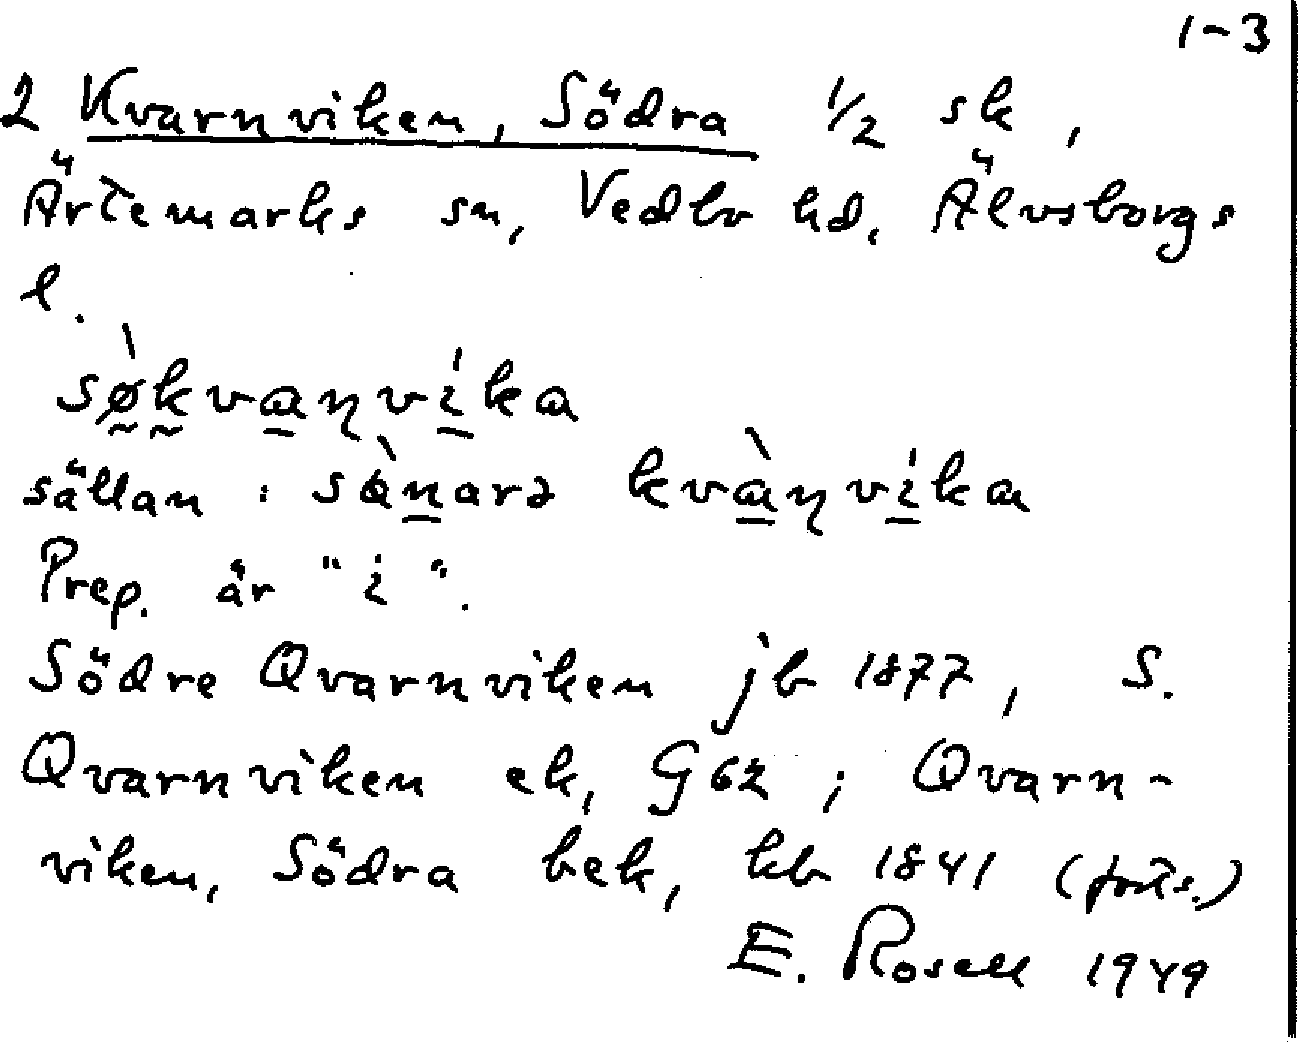 1-3
2 Kvarnviken, Södra 1/2 sk,
Ärtemarks sn, Vedbo hd, Älvsborgs
l.
sø̀kvaɳvíka
sällan : sànarə kvàɳvíka
Prep. är "i".
Södre Qvarnviken jb 1877, S.
Qvarnviken ek, G62 ; Qvarn-
viken, Södra bek, kb 1841 (forts.)
E. Rosell 1949